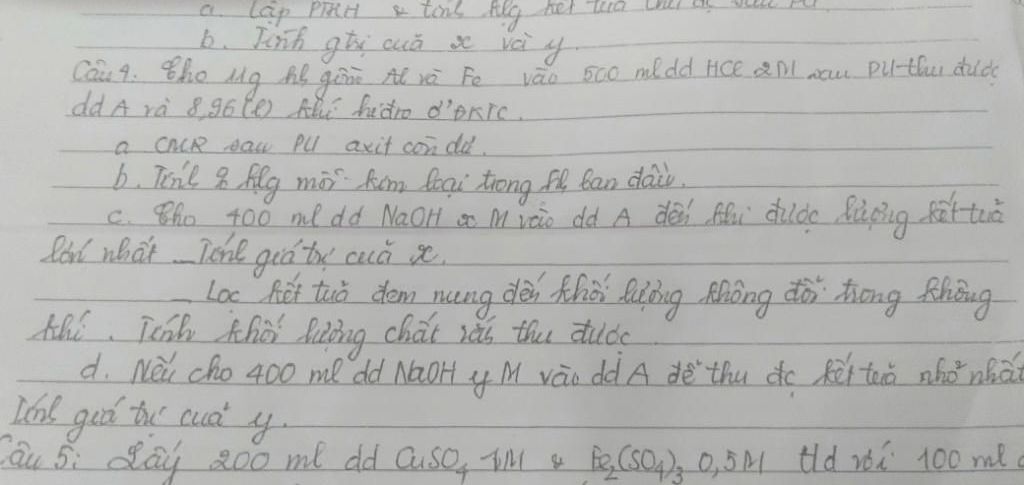 a. Lập PTHH & tính klg kết tủa thu đc sau PƯ
b. Tính gtrị cuả x và y.
Câu 4. Cho 11g hh gồm Al và Fe vào 500 ml dd HCl 2M sau PƯ thu được
dd A và 8,96 (l) khí hiđro ở ĐKTC.
a CMR sau PƯ axit còn dư.
b. Tính % klg mỗi kim loại trong hh ban đầu.
c. Cho 400 ml dd NaOH x M vào dd A đến khi được lượng kết tuả
lớn nhất _ Tính giá trị cuả x.
_ Lọc kết tuả đem nung đến khối lượng không đổi trong không
khí. Tính khối lượng chất rắn thu được
d. Nếu cho 400 ml dd NaOH y M vào dd A để thu đc kết tuả nhỏ nhất
Tính giá trị cuả y.
Câu 5: Lấy 200 ml dd CuSO4 1M & Fe2(SO4)3 0,5M t/d với 100 ml